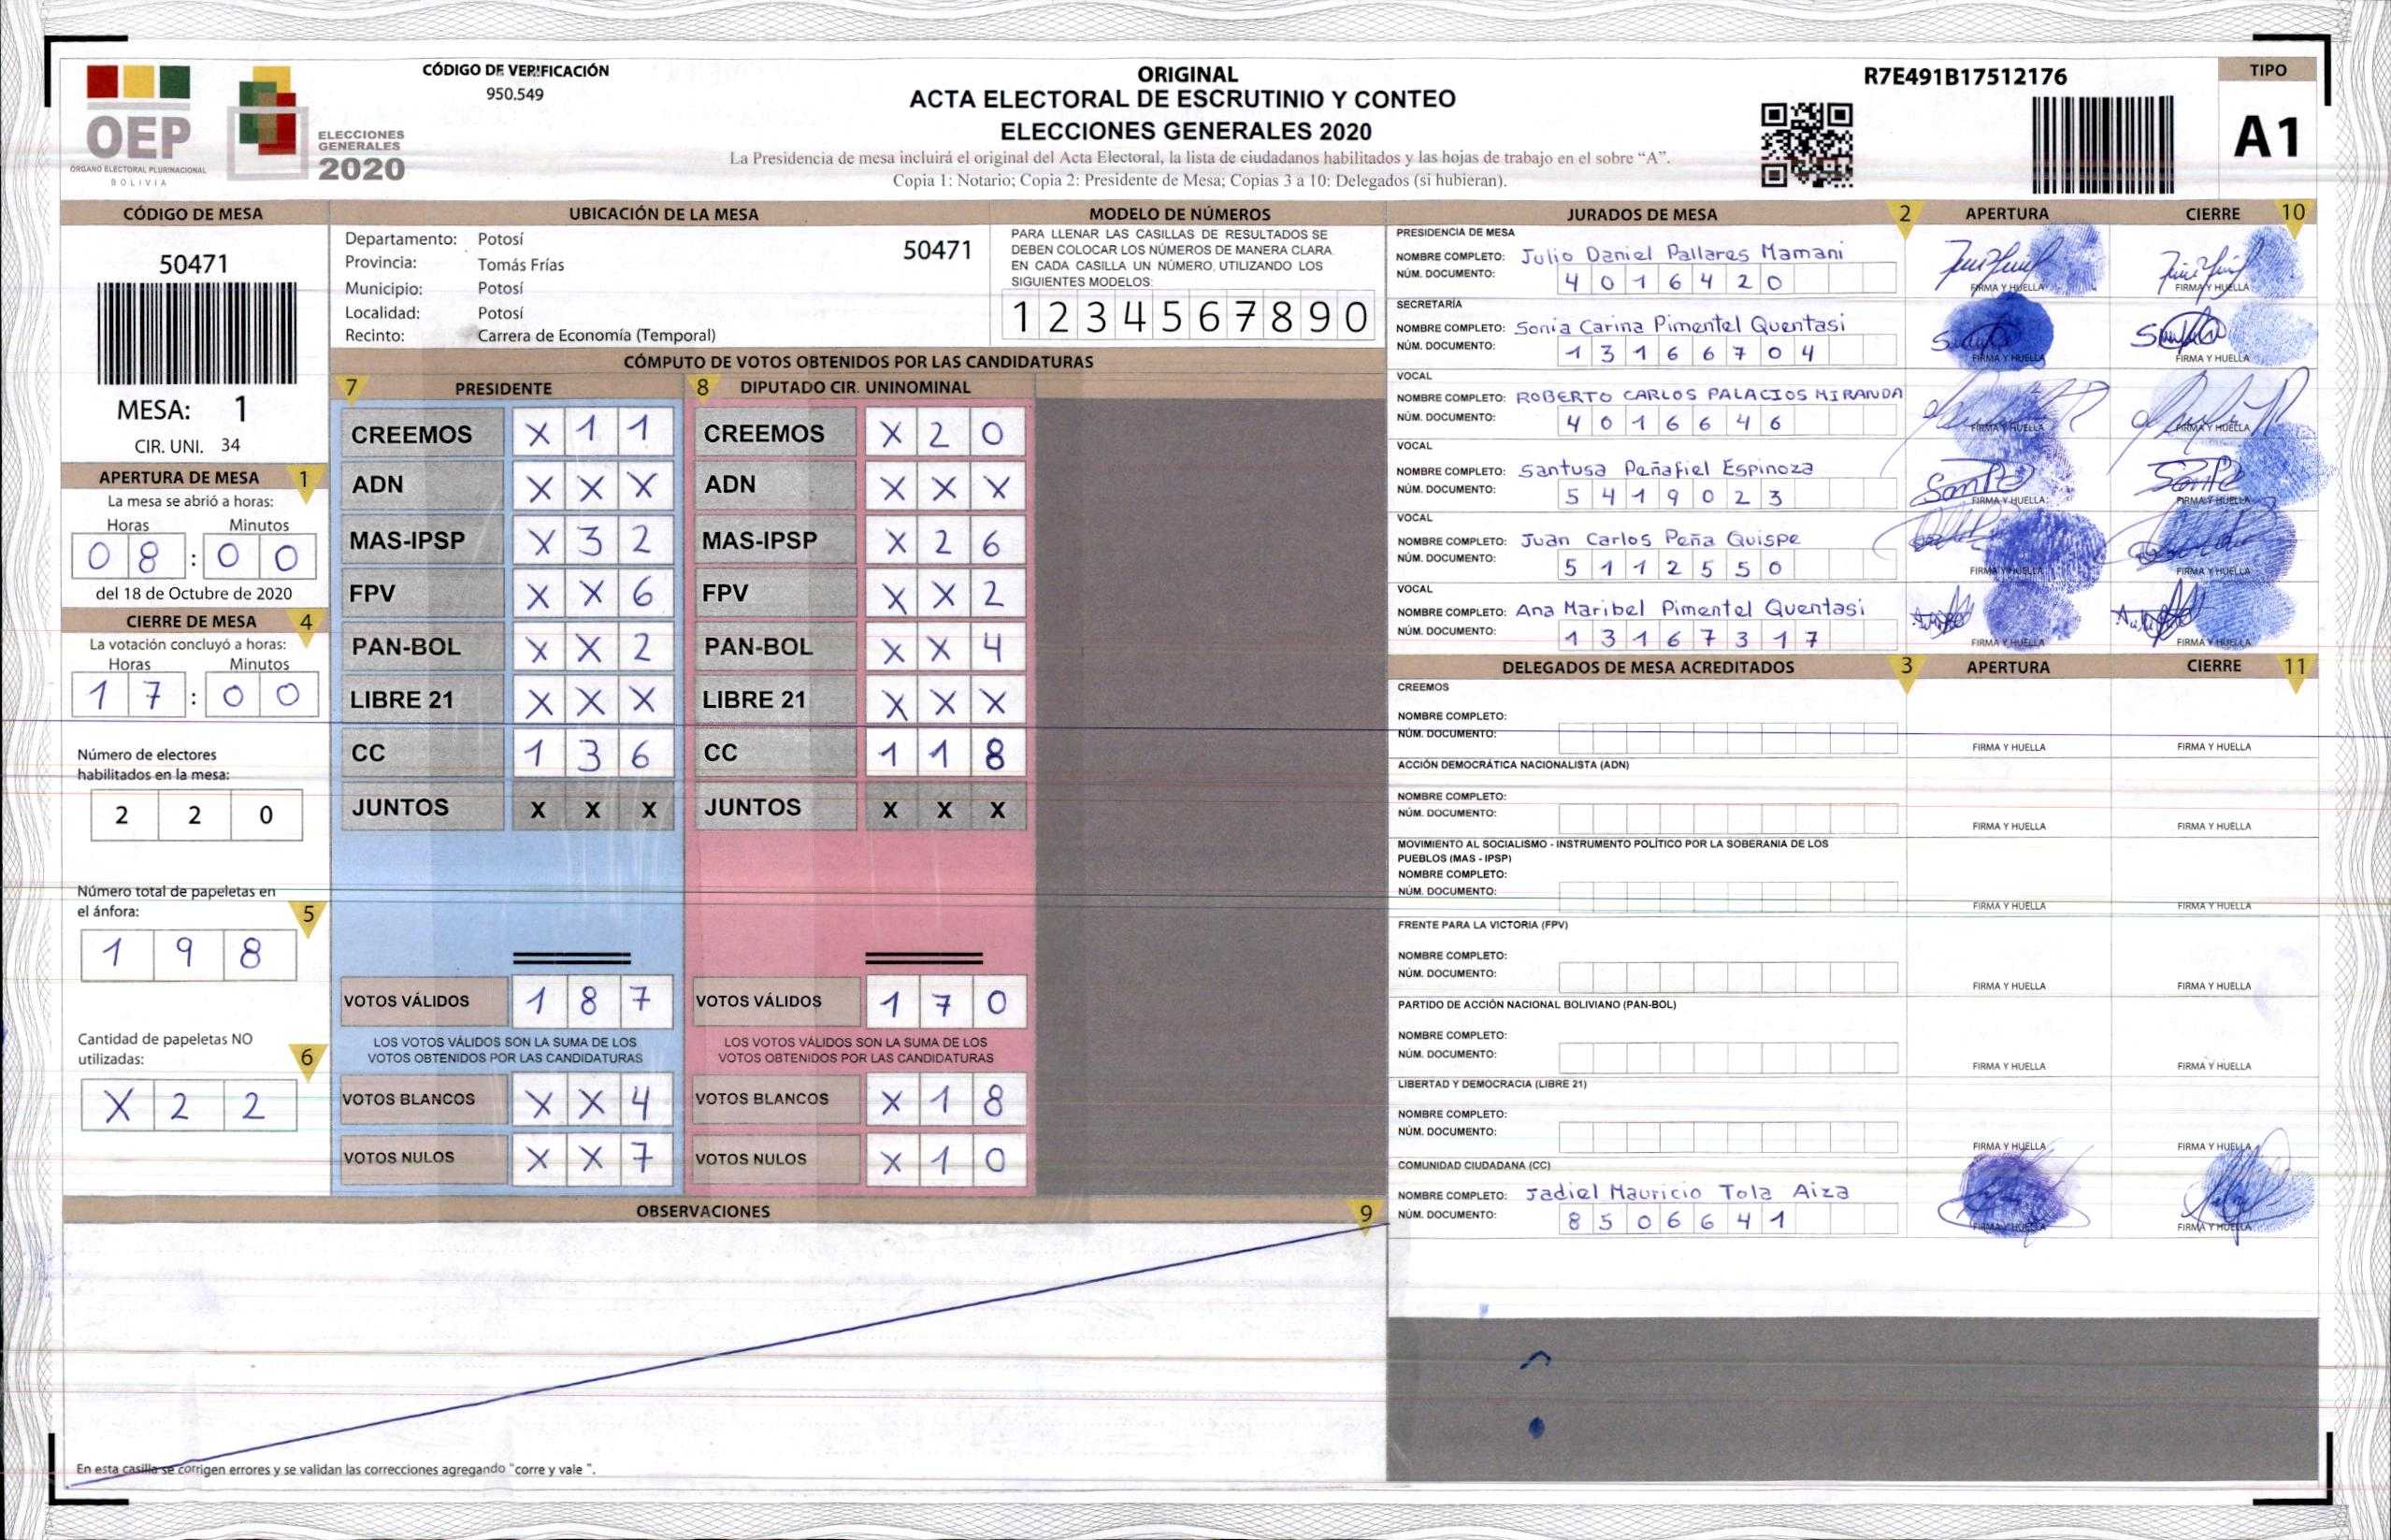 CÓDIGO DE VERIFICACIÓN
950.549
OEP
ÓRGANO ELECTORAL PLURINACIONAL
BOLIVIA
ELECCIONES
GENERALES
2020
ORIGINAL
ACTA ELECTORAL DE ESCRUTINIO Y CONTEO
ELECCIONES GENERALES 2020
La Presidencia de mesa incluirá el original del Acta Electoral, la lista de ciudadanos habilitados y las hojas de trabajo en el sobre “A”.
Copia 1: Notario; Copia 2: Presidente de Mesa; Copias 3 a 10: Delegados (si hubieran).
R7E491B17512176
TIPO
A1
CÓDIGO DE MESA
50471
MESA: 1
CIR. UNI. 34
APERTURA DE MESA 1
La mesa se abrió a horas:
Horas Minutos
0 8 : 0 0
del 18 de Octubre de 2020
CIERRE DE MESA 4
La votación concluyó a horas:
Horas Minutos
1 7 : 0 0
Número de electores
habilitados en la mesa:
2 2 0
Número total de papeletas en
el ánfora: 5
1 9 8
Cantidad de papeletas NO
utilizadas: 6
X 2 2
UBICACIÓN DE LA MESA
Departamento: Potosí
50471
Provincia: Tomás Frías
Municipio: Potosí
Localidad: Potosí
Recinto: Carrera de Economía (Temporal)
MODELO DE NÚMEROS
PARA LLENAR LAS CASILLAS DE RESULTADOS SE
DEBEN COLOCAR LOS NÚMEROS DE MANERA CLARA
EN CADA CASILLA UN NÚMERO, UTILIZANDO LOS
SIGUIENTES MODELOS:
1 2 3 4 5 6 7 8 9 0
CÓMPUTO DE VOTOS OBTENIDOS POR LAS CANDIDATURAS
7 PRESIDENTE
CREEMOS X 1 1
ADN X X X
MAS-IPSP X 3 2
FPV X X 6
PAN-BOL X X 2
LIBRE 21 X X X
CC 1 3 6
JUNTOS X X X
VOTOS VÁLIDOS 1 8 7
LOS VOTOS VÁLIDOS SON LA SUMA DE LOS
VOTOS OBTENIDOS POR LAS CANDIDATURAS
VOTOS BLANCOS X X 4
VOTOS NULOS X X 7
8 DIPUTADO CIR. UNINOMINAL
CREEMOS X 2 0
ADN X X X
MAS-IPSP X 2 6
FPV X X 2
PAN-BOL X X 4
LIBRE 21 X X X
CC 1 1 8
JUNTOS X X X
VOTOS VÁLIDOS 1 7 0
LOS VOTOS VÁLIDOS SON LA SUMA DE LOS
VOTOS OBTENIDOS POR LAS CANDIDATURAS
VOTOS BLANCOS X 1 8
VOTOS NULOS X 1 0
OBSERVACIONES 9
En esta casilla se corrigen errores y se validan las correcciones agregando "corre y vale ".
JURADOS DE MESA 2 APERTURA CIERRE 10
PRESIDENCIA DE MESA
NOMBRE COMPLETO: Julio Daniel Pallares Mamani
NÚM. DOCUMENTO: 4 0 1 6 4 2 0
FIRMA Y HUELLA FIRMA Y HUELLA
SECRETARÍA
NOMBRE COMPLETO: Sonia Carina Pimentel Quentasi
NÚM. DOCUMENTO: 1 3 1 6 6 7 0 4
FIRMA Y HUELLA FIRMA Y HUELLA
VOCAL
NOMBRE COMPLETO: ROBERTO CARLOS PALACIOS MIRANDA
NÚM. DOCUMENTO: 4 0 1 6 6 4 6
FIRMA Y HUELLA FIRMA Y HUELLA
VOCAL
NOMBRE COMPLETO: Santusa Peñafiel Espinoza
NÚM. DOCUMENTO: 5 4 1 9 0 2 3
FIRMA Y HUELLA FIRMA Y HUELLA
VOCAL
NOMBRE COMPLETO: Juan Carlos Peña Quispe
NÚM. DOCUMENTO: 5 1 1 2 5 5 0
FIRMA Y HUELLA FIRMA Y HUELLA
VOCAL
NOMBRE COMPLETO: Ana Maribel Pimentel Quentasi
NÚM. DOCUMENTO: 1 3 1 6 7 3 1 7
FIRMA Y HUELLA FIRMA Y HUELLA
DELEGADOS DE MESA ACREDITADOS 3 APERTURA CIERRE 11
CREEMOS
NOMBRE COMPLETO:
NÚM. DOCUMENTO:
FIRMA Y HUELLA FIRMA Y HUELLA
ACCIÓN DEMOCRÁTICA NACIONALISTA (ADN)
NOMBRE COMPLETO:
NÚM. DOCUMENTO:
FIRMA Y HUELLA FIRMA Y HUELLA
MOVIMIENTO AL SOCIALISMO - INSTRUMENTO POLÍTICO POR LA SOBERANIA DE LOS
PUEBLOS (MAS - IPSP)
NOMBRE COMPLETO:
NÚM. DOCUMENTO:
FIRMA Y HUELLA FIRMA Y HUELLA
FRENTE PARA LA VICTORIA (FPV)
NOMBRE COMPLETO:
NÚM. DOCUMENTO:
FIRMA Y HUELLA FIRMA Y HUELLA
PARTIDO DE ACCIÓN NACIONAL BOLIVIANO (PAN-BOL)
NOMBRE COMPLETO:
NÚM. DOCUMENTO:
FIRMA Y HUELLA FIRMA Y HUELLA
LIBERTAD Y DEMOCRACIA (LIBRE 21)
NOMBRE COMPLETO:
NÚM. DOCUMENTO:
FIRMA Y HUELLA FIRMA Y HUELLA
COMUNIDAD CIUDADANA (CC)
NOMBRE COMPLETO: Jadiel Mauricio Tola Aiza
NÚM. DOCUMENTO: 8 5 0 6 6 4 1
FIRMA Y HUELLA FIRMA Y HUELLA